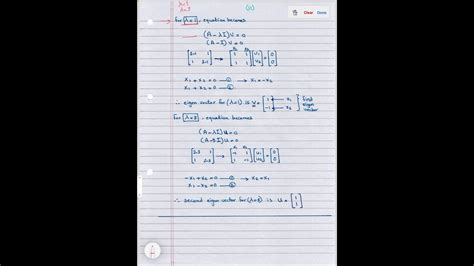 λ=1
λ=3
(11)
Clear Done
for λ=1, equation becomes
(A-λI)V=0
(A-I)V=0
[2-1 1; 1 2-1] → [1 1; 1 1] [V₁; V₂] = [0; 0]
x₁+x₂=0 → x₁=-x₂
x₁+x₂=0
∴ eigen vector for (λ=1) is V= [1; -1] → x₁ → x₂ first eigen vector
for λ=3, equation becomes
(A-λI)U=0
(A-3I)U=0
[2-3 1; 1 2-3] → [-1 1; 1 -1] [U₁; U₂] = [0; 0]
-x₁+x₂=0 → x₂=x₁
x₁-x₂=0
∴ second eigen vector for (λ=3) is U= [1; 1]